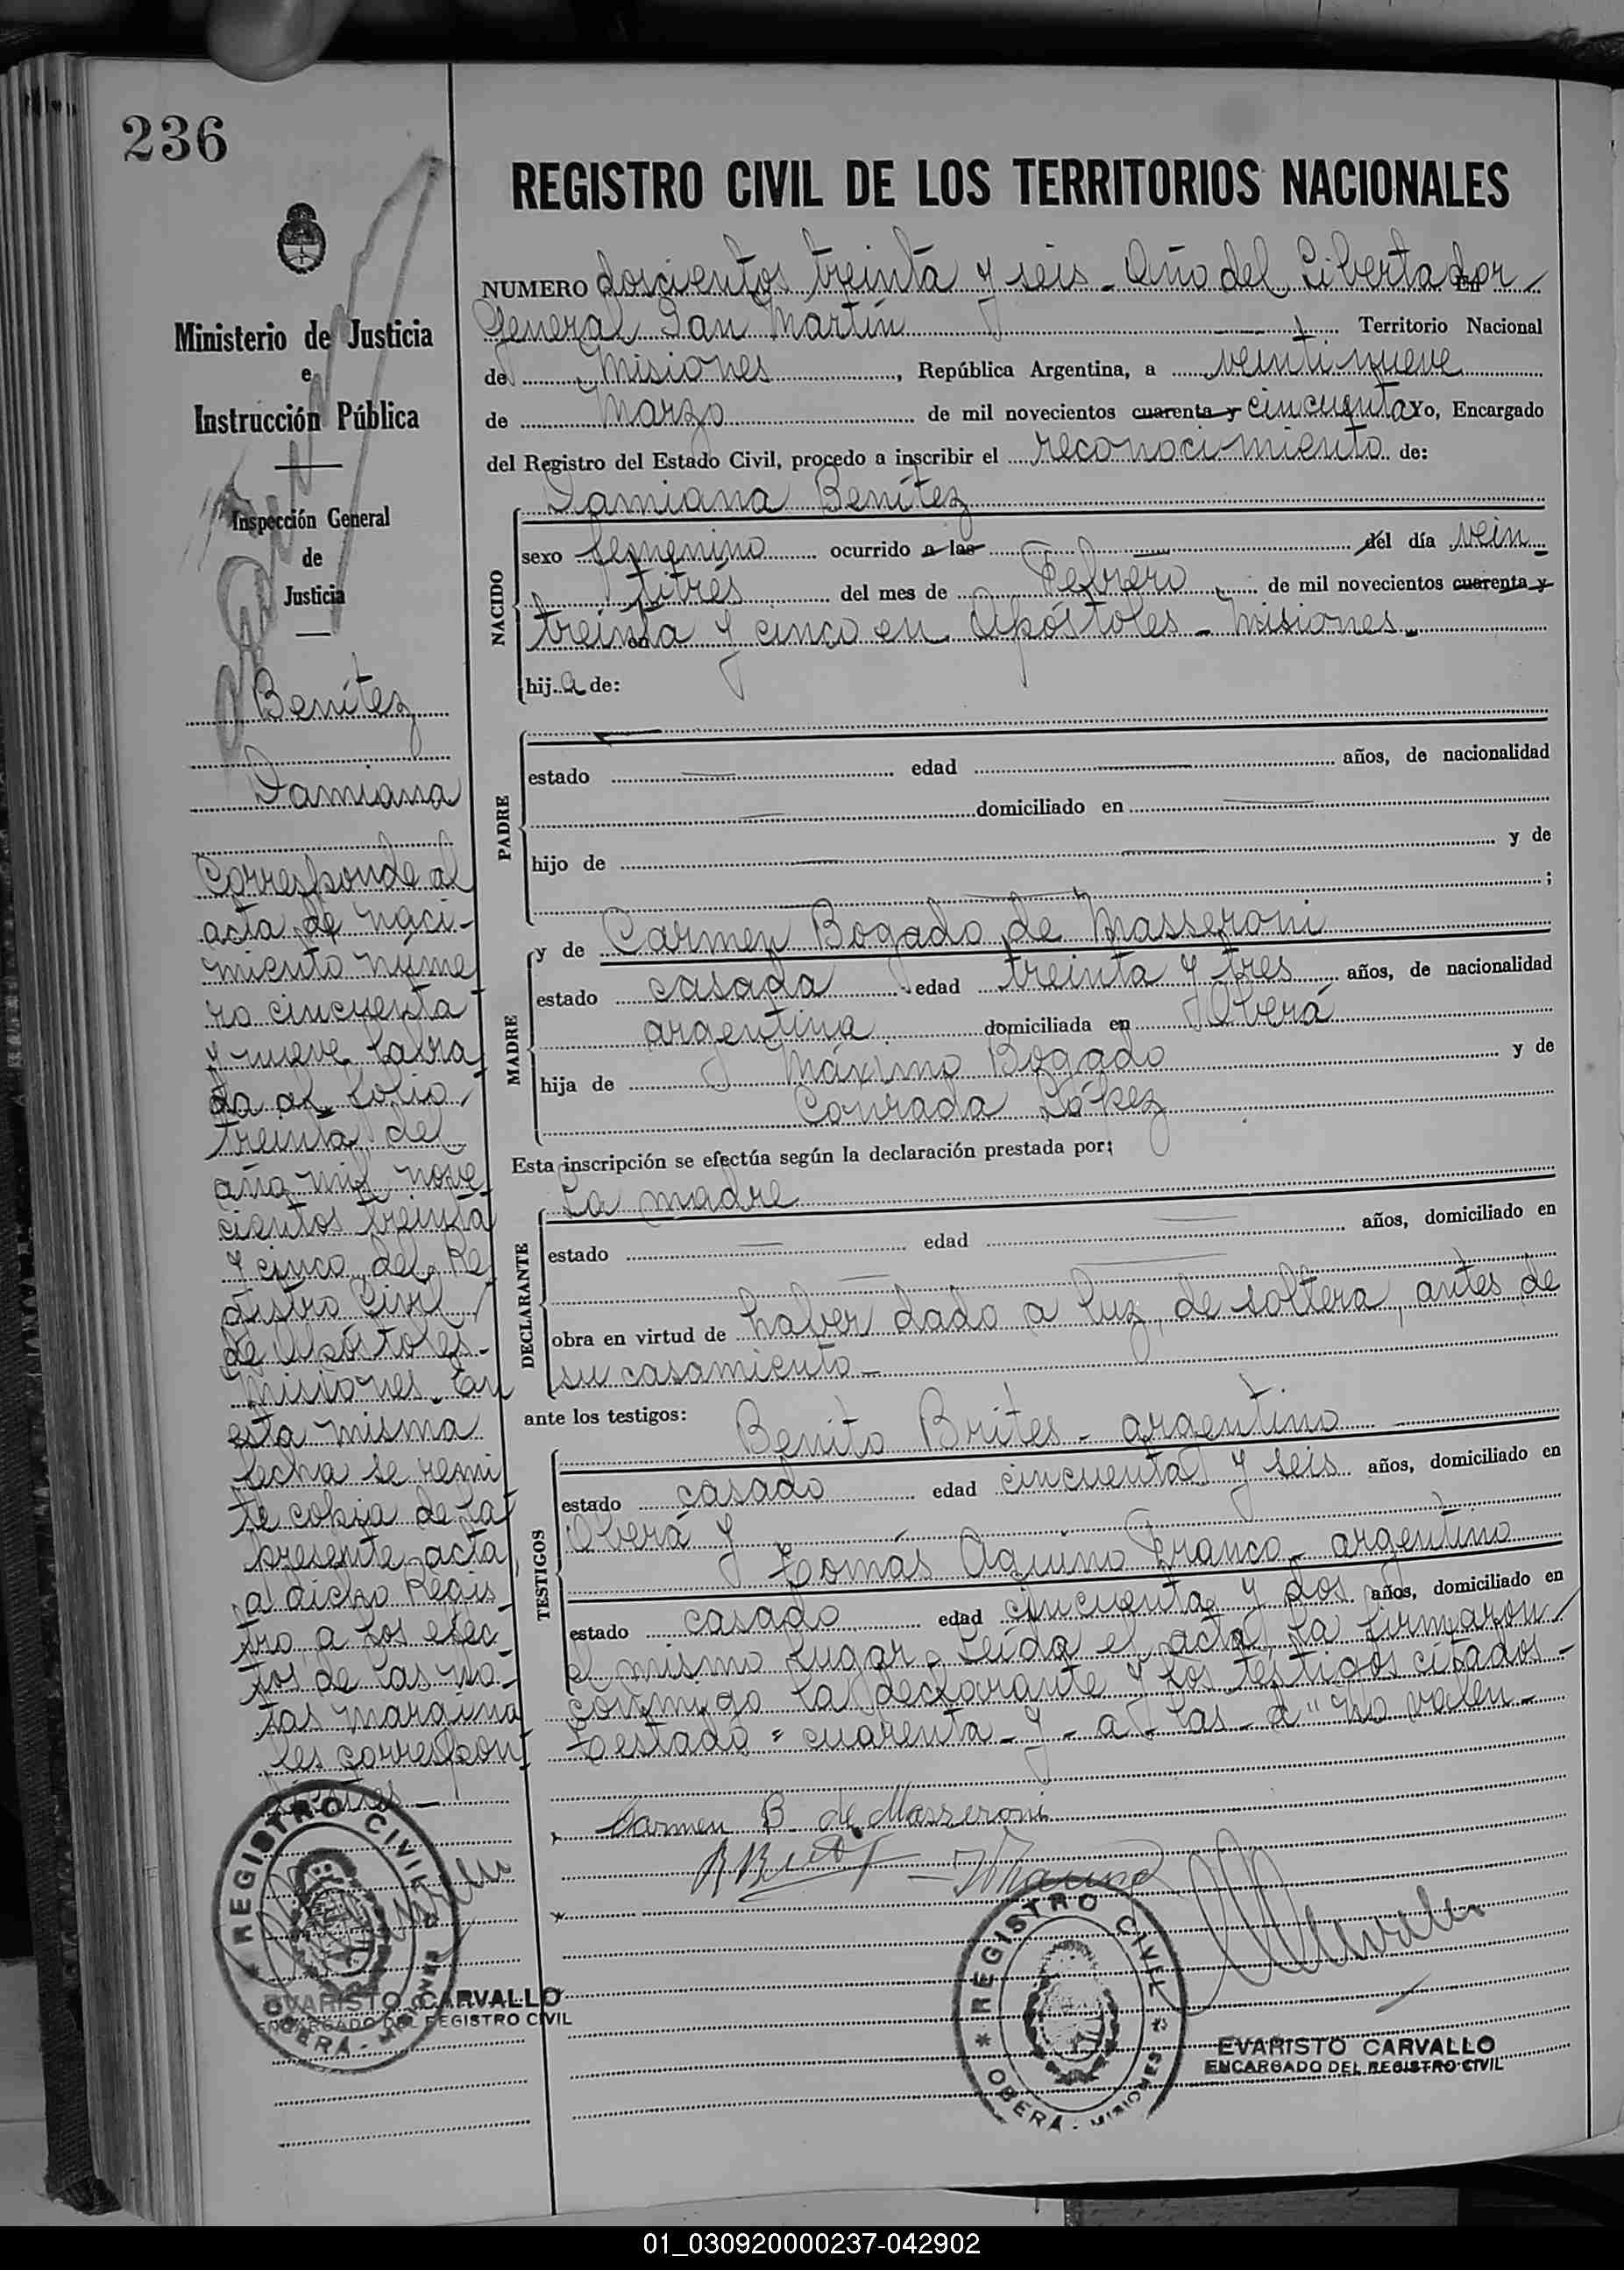 236
Ministerio de Justicia
e
Instrucción Pública
Inspección General
de
Justicia
Benítez
Damiana
Corresponde al
acta de naci-
miento núme
ro cincuenta
y nueve labra
da al folio
treinta del
año mil nove
cientos treinta
y cinco del Re
gistro Civil
de Apóstoles-
Misiones. En
esta misma
fecha se remi
te copia de la
presente acta
a dicho Regis
tro a los efec
tos de las no-
tas margina
les correspon
dientes-
REGISTRO CIVIL
OBERA - MISIONES
EVARISTO CARVALLO
ENCARGADO DEL REGISTRO CIVIL
REGISTRO CIVIL DE LOS TERRITORIOS NACIONALES
NUMERO doscientos treinta y seis - Año del Libertador
General San Martín Territorio Nacional
de Misiones, República Argentina, a veintinueve
de Marzo de mil novecientos cuarenta y cincuenta Yo, Encargado
del Registro del Estado Civil, procedo a inscribir el reconocimiento de:
Damiana Benítez
NACIDO
sexo femenino ocurrido a las del día vein-
titrés del mes de Febrero de mil novecientos cuarenta y
treinta y cinco en Apóstoles - Misiones-
hija de:
PADRE
estado edad años, de nacionalidad
domiciliado en
hijo de y de
;
MADRE
y de Carmen Bogado de Masseroni
estado casada edad treinta y tres años, de nacionalidad
argentina domiciliada en Oberá
hija de Máximo Bogado y de
Conrada López
Esta inscripción se efectúa según la declaración prestada por:
La madre
DECLARANTE
estado edad años, domiciliado en
obra en virtud de haber dado a luz, de soltera, antes de
su casamiento-
ante los testigos:
Benito Brites - argentino
TESTIGOS
estado casado edad cincuenta y seis años, domiciliado en
Oberá y
Tomás Aquino Franco - argentino
estado casado edad cincuenta y dos años, domiciliado en
el mismo lugar. Leída el acta, la firmaron
conmigo la declarante y los testigos citados-
Testado "cuarenta - y - a - las - d" No valen-
Carmen B. de Masseroni
REGISTRO CIVIL
OBERA - MISIONES
EVARISTO CARVALLO
ENCARGADO DEL REGISTRO CIVIL
01_030920000237-042902